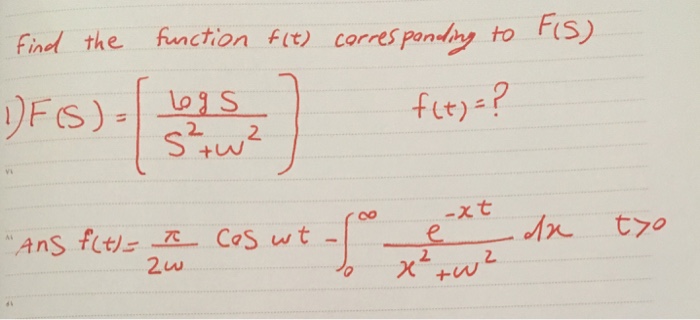 Find the function f(t) corresponding to F(S)
1) F(S) = [ log S / S²+w² ] f(t) = ?
Ans f(t) = π/2w Cos wt - ∫₀^∞ e^-xt / x²+w² dx t>0